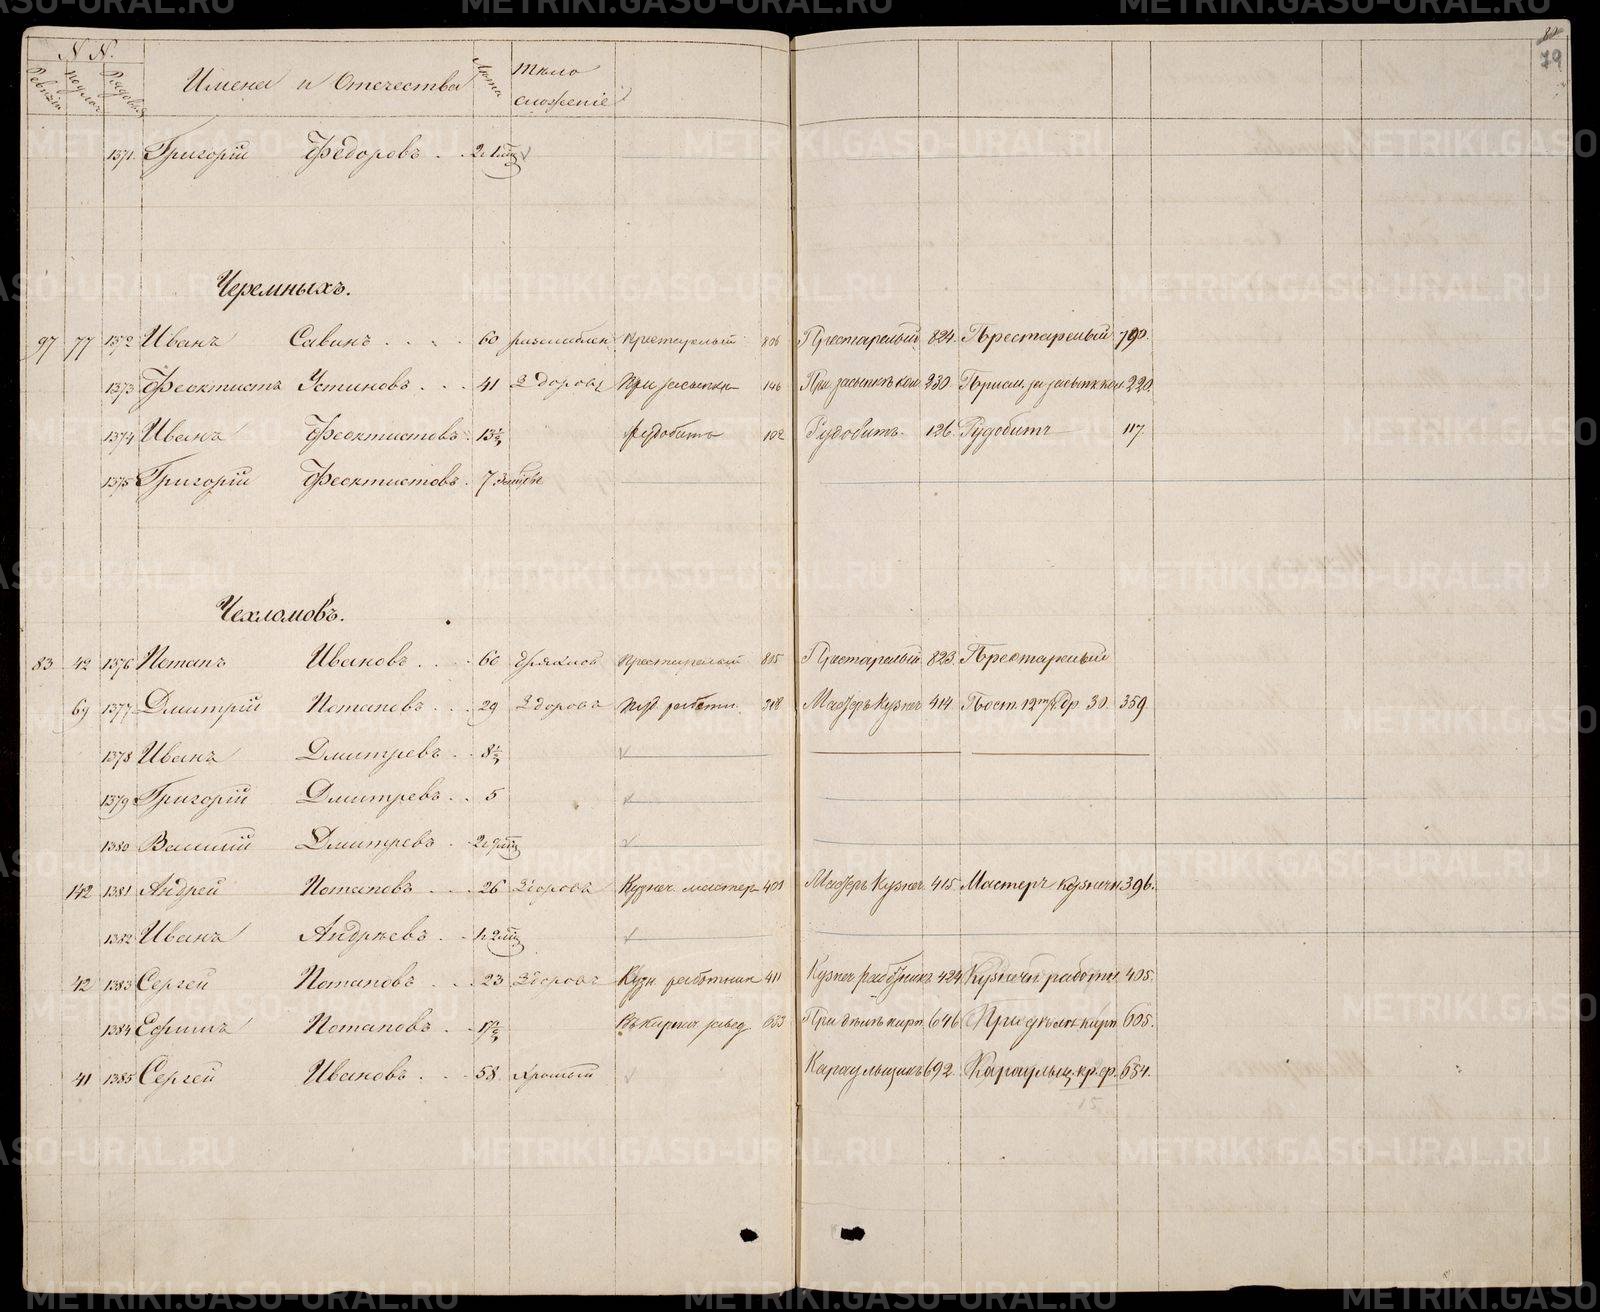 N N.
Ревизіи Подушн Рядовыя Имена и Отечества Лѣта Тѣло
сложеніе
80
79
1371. Григорій Федоровъ . . 2 г 1 мц
Черемныхъ.
97 77 1372 Иванъ Савинъ . . . . 60 разслаблен Престарелый 806 Престарелый 824. Престарелый 790.
1373 Феоктистъ Устиновъ . . . 41 Здоровъ При засыпки 146 При засыпкѣ кол 230. Присм. за засыпк кол. 220.
1374 Иванъ Феоктистовъ . 13½ Рудобитъ 102 Рудобитъ. 126. Рудобитъ 117.
1375 Григорій Феоктистовъ . 7
Чехломовъ.
83 42 1376 Потапъ Ивановъ . . . . 60 Дряхлой Престарелый 805 Престарелый. 823. Престарелый
69 1377 Дмитрій Потаповъ . . . 29 Здоровъ 318 Мастеръ Кузнеч 414 Пост. 12 30. 359.
1378 Иванъ Дмитревъ . . 8½
1379 Григорій Дмитревъ . . 5
1380 Василій Дмитревъ . . 2 г 9 мц
142 1381 Андрей Потаповъ . . . 26 Здоровъ Кузнеч. мастер 401 Мастеръ Кузнеч. 415. Мастеръ кузнечн 396.
1382 Иванъ Андрѣевъ . . 1 г 2 мц
42 1383 Сергей Потаповъ . . . 23 Здоровъ Кузн. работник 411 Кузнеч работникъ 424 Кузнечн. работн. 405.
1384 Ефимъ Потаповъ . . . 17½ Въ кирпич. завед 653 При дѣлѣ кирп. 646. При дѣлѣ кирп 605.
41 1385 Сергей Ивановъ . . . 58 Хромый Караульщикъ 692. Караульщ. кр. ф. 654.
METRIKI.GASO-URAL.RU